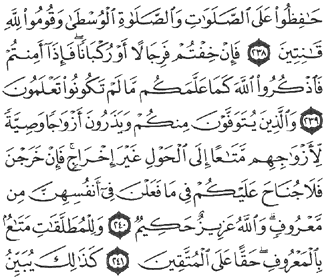 حَـٰفِظُوا۟ عَلَى ٱلصَّلَوَٰتِ وَٱلصَّلَوٰةِ ٱلْوُسْطَىٰ وَقُومُوا۟ لِلَّهِ
قَـٰنِتِينَ ٢٣٨ فَإِنْ خِفْتُمْ فَرِجَالًا أَوْ رُكْبَانًا ۖ فَإِذَآ أَمِنتُمْ
فَٱذْكُرُوا۟ ٱللَّهَ كَمَا عَلَّمَكُم مَّا لَمْ تَكُونُوا۟ تَعْلَمُونَ
٢٣٩ وَٱلَّذِينَ يُتَوَفَّوْنَ مِنكُمْ وَيَذَرُونَ أَزْوَٰجًا وَصِيَّةً
لِّأَزْوَٰجِهِم مَّتَـٰعًا إِلَى ٱلْحَوْلِ غَيْرَ إِخْرَاجٍ ۚ فَإِنْ خَرَجْنَ
فَلَا جُنَاحَ عَلَيْكُمْ فِى مَا فَعَلْنَ فِىٓ أَنفُسِهِنَّ مِن
مَّعْرُوفٍ ۗ وَٱللَّهُ عَزِيزٌ حَكِيمٌ ٢٤٠ وَلِلْمُطَلَّقَـٰتِ مَتَـٰعٌۢ
بِٱلْمَعْرُوفِ ۖ حَقًّا عَلَى ٱلْمُتَّقِينَ ٢٤١ كَذَٰلِكَ يُبَيِّنُ